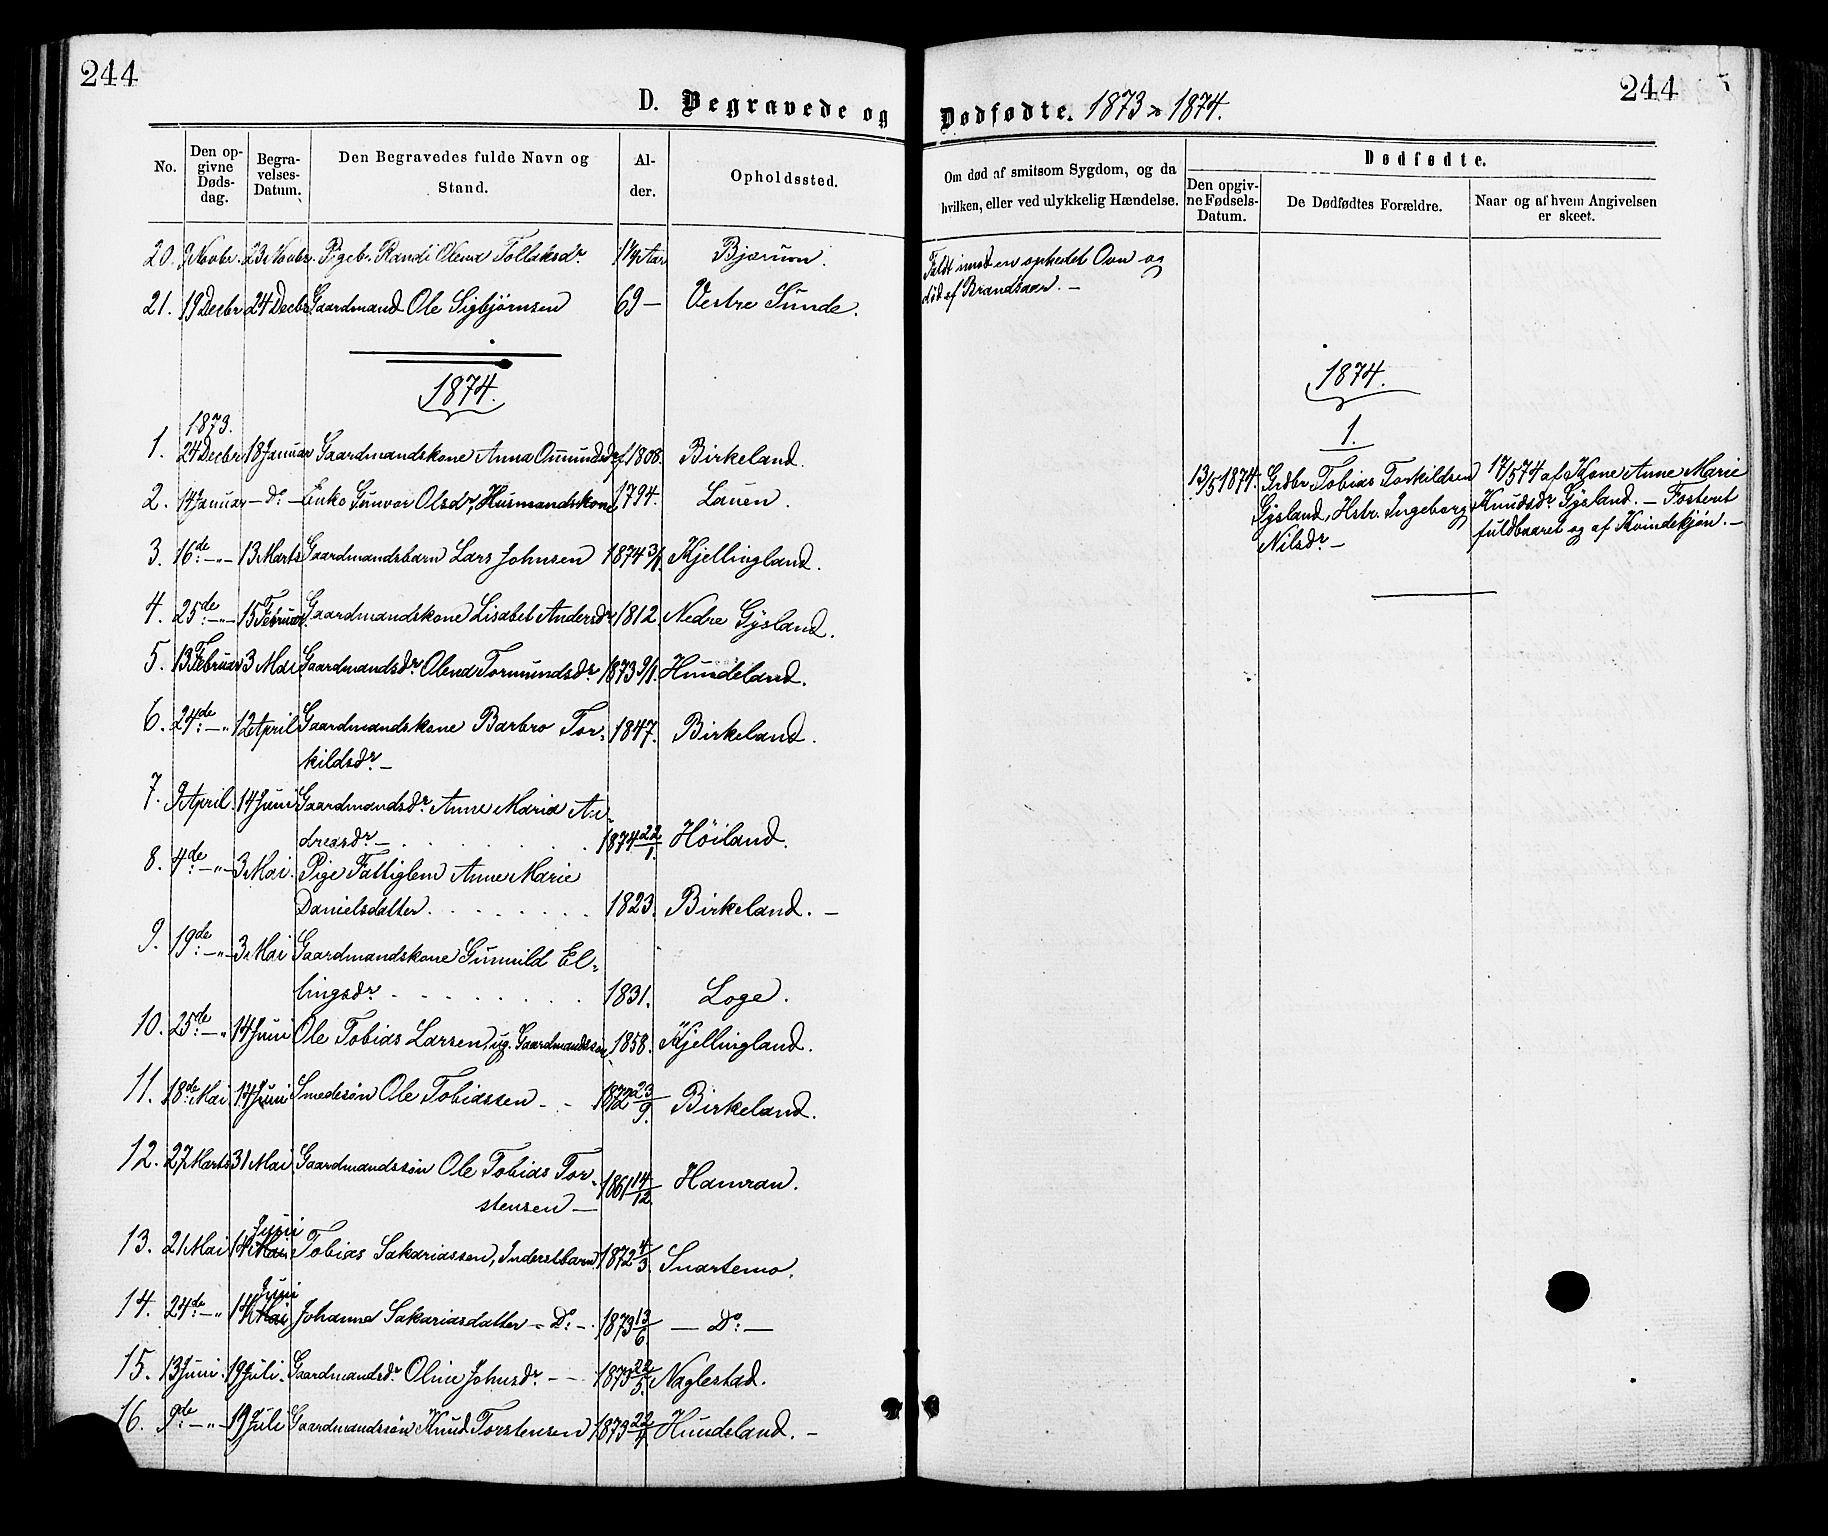 244
D. Begravede og
No.
Den opgivne Dødsdag.
Begravelses-Datum.
Den Begravedes fulde Navn og Stand.
Alder.
Opholdssted.
20. 9 Novbr. 23 Novbr. Pigeb. Randi Olena Tollaksdr. Aar Bjærum.
21. 19 Decbr 24 Decbr Gaardmand Ole Sigbjørnsen 69 — Vestre Sunde.
1874.
1873.
1. 24 Decbr 18 Januar Gaardmandskone Anna Omundsdr 1808. Birkeland.
2. 14 Januar — Do — Enke Gunvor Olsdr, Husmandskone 1794. Lauen.
3. 16de —"— 13 Marts Gaardmandsbarn Lars Johnsen 1874 3/1. Kjellingland.
4. 25de —"— 15 Februar Gaardmandskone Lisabet Andersdr 1812. Nedre Gysland.
5. 13 Februar 3 Mai Gaardmandsdr. Olena Tormundsdr. 1873 9/1. Hundeland.
6. 24de —"— 12 April Gaardmandskone Barbro Tor-
kildsdr. — 1847. Birkeland.
7. 9 April. 14 Juni Gaardmandsdr. Anne Maria An-
dreasdr. — 1874 22/1. Höiland.
8. 4de —"— 3 Mai. Pige Fattiglem Anne Marie
Danielsdatter. 1823. Birkeland. —
9. 19de —"— 3 Mai Gaardmandskone Gunnild El-
lingsdr. 1831. Loge.
10. 25de —"— 14 Juni Ole Tobias Larsen, ug. Gaardmandssøn 1858. Kjellingland.
11. 18de Mai 14 Juni Smedesön Ole Tobiassen — 1872 23/9. Birkeland.
12. 27 Marts 31 Mai Gaardmandssön Ole Tobias Tor-
stensen — 1861 14/12. Hamran.
13. 21 Mai 14 Juni Tobias Sakariassen, Inderstbarn 1872 4/3. Snartemo.
14. 24de —"— 14 Juni Johanne Sakariasdatter — Do — 1873 13/6 — Do: —
15. 13 Juni. 19 Juli. Gaardmandsdr. Oline Johnsdr. — — 1873 22/5. Naglestad.
16. 9de —"— 19 Juli Gaardmandssön Knud Torstensen 1873 22/4 Hundeland. —
Dødfødte. 1873 & 1874.
244
Om død af smitsom Sygdom, og da
hvilken, eller ved ulykkelig Hændelse.
Dødfødte.
Den opgivne Fødsels-Datum.
De Dødfødtes Forældre.
Naar og af hvem Angivelsen er skeet.
Faldt imod en ophedet Ovn og
död af Brandsaar. —
1874.
1.
13/5 1874. Grdbr Tobias Torkildsen
Gysland, Hstr. Ingeborg
Nilsdr. —
17/5 74 af Kone Anne Marie
Knudsdr Gysland. — Fosteret
fuldbaaret og af Kvindekjön. —